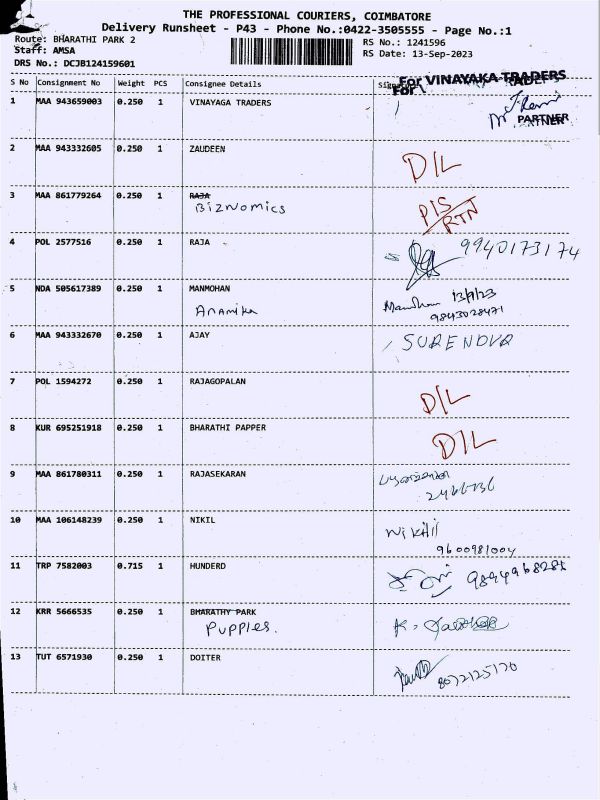 THE PROFESSIONAL COURIERS, COIMBATORE
Delivery Runsheet - P43 - Phone No.:0422-3505555 - Page No.:1
Route: BHARATHI PARK 2
RS No.: 1241596
Staff: AMSA
RS Date: 13-Sep-2023
DRS No.: DCJB124159601
S No Consignment No Weight PCS Consignee Details
For VINAYAKA TRADERS
For
1 MAA 943659003 0.250 1 VINAYAGA TRADERS
PARTNER
2 MAA 943332605 0.250 1 ZAUDEEN
D/L
3 MAA 861779264 0.250 1 RAJA
BIZNOMICS
P/S
RTN
4 POL 2577516 0.250 1 RAJA
9940173174
5 NDA 505617389 0.250 1 MANMOHAN
Anamika
13/9/23
9843028471
6 MAA 943332670 0.250 1 AJAY
SURENDVR
7 POL 1594272 0.250 1 RAJAGOPALAN
D/L
8 KUR 695251918 0.250 1 BHARATHI PAPPER
D/L
9 MAA 861780311 0.250 1 RAJASEKARAN
10 MAA 106148239 0.250 1 NIKIL
Nikhil
9600981004
11 TRP 7582003 0.715 1 HUNDERD
12 KRR 5666535 0.250 1 BHARATHY PARK
Puppies.
13 TUT 6571930 0.250 1 DOITER
8072125170